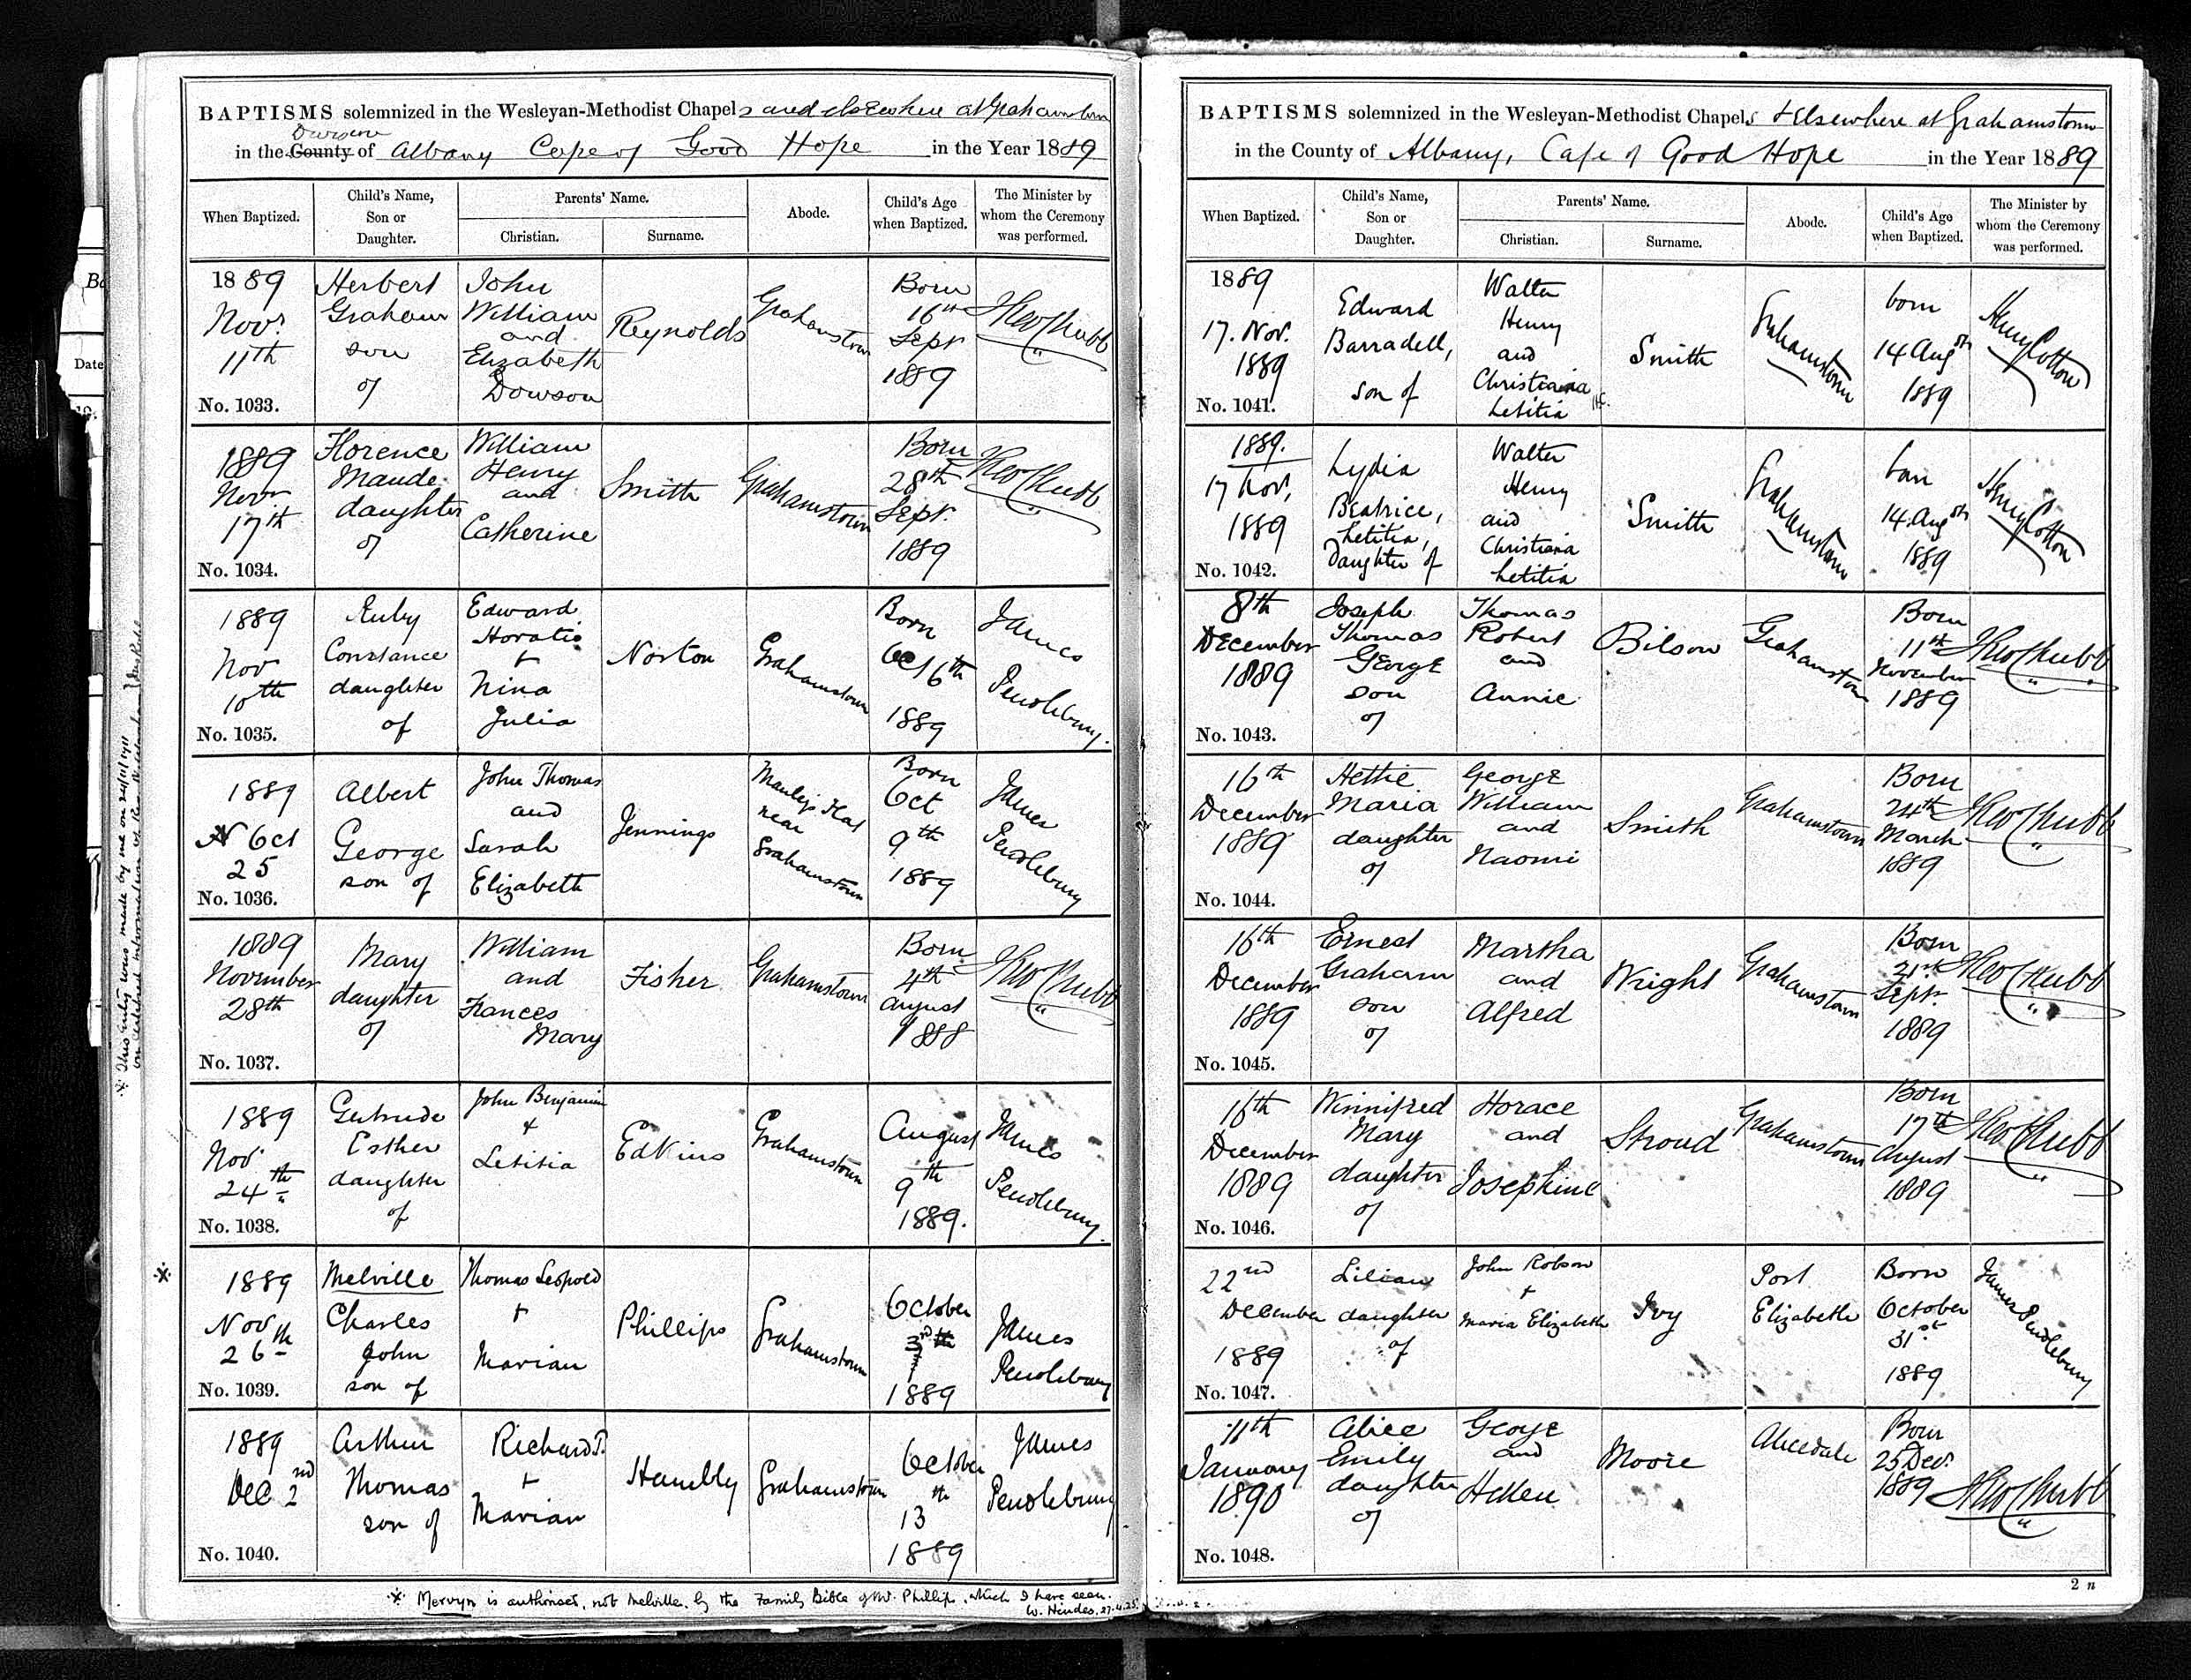 BAPTISMS solemnized in the Wesleyan-Methodist Chapels and elsewhere at Grahamstown
Division
in the County of Albany Cape of Good Hope in the Year 1889
When Baptized.
Child's Name,
Son or
Daughter.
Parents' Name.
Christian.
Surname.
Abode.
Child's Age
when Baptized.
The Minister by
whom the Ceremony
was performed.
1889
Novr
11th
No. 1033.
Herbert
Graham
son
of
John
William
and
Elizabeth
Dowson
Reynolds
Grahamstown
Born
16th
Sept
1889
Theo Chubb
1889
Novr
17th
No. 1034.
Florence
Maude
daughter
of
William
Henry
and
Catherine
Smith
Grahamstown
Born
28th
Sept.
1889
Theo Chubb
1889
Nov
10th
No. 1035.
Ruby
Constance
daughter
of
Edward
Horatio
+
Nina
Julia
Norton
Grahamstown
Born
Oct 6th
1889
James
Pendlebury.
1889
Oct
25
No. 1036.
Albert
George
son of
John Thomas
and
Sarah
Elizabeth
Jennings
Manley's Flat
near
Grahamstown
Born
Oct
9th
1889
James
Pendlebury
1889
November
28th
No. 1037.
Mary
daughter
of
William
and
Frances
Mary
Fisher
Grahamstown
Born
4th
August
1888
Theo Chubb
1889
Nov
24th
No. 1038.
Gertrude
Esther
daughter
of
John Benjamin
+
Letitia
Edkins
Grahamstown
August
9th
1889.
James
Pendlebury.
1889
Nov
26th
No. 1039.
Melville
Charles
John
son of
Thomas Leopold
+
Marian
Phillips
Grahamstown
October
3rd
1889
James
Pendlebury
1889
Dec 2nd
No. 1040.
Arthur
Thomas
son of
Richard T.
+
Marian
Hambly
Grahamstown
October
13th
1889
James
Pendlebury
* Mervyn is authorised, not Melville, by the Family Bible of Mr. Phillips, which I have seen.
W. Hindes, 27.4.25.
* This entry was made by me on 24/11/1911
Date
BAPTISMS solemnized in the Wesleyan-Methodist Chapels + Elsewhere at Grahamstown
in the County of Albany, Cape of Good Hope in the Year 1889
When Baptized.
Child's Name,
Son or
Daughter.
Parents' Name.
Christian.
Surname.
Abode.
Child's Age
when Baptized.
The Minister by
whom the Ceremony
was performed.
1889
17. Nov.
1889
No. 1041.
Edward
Barradell,
son of
Walter
Henry
and
Christiana
Letitia
Smith
Grahamstown
born
14 Aug
1889
Henry Cotton
1889.
17 Nov.
1889
No. 1042.
Lydia
Beatrice,
Letitia,
Daughter of
Walter
Henry
and
Christiana
Letitia
Smith
Grahamstown
born
14. Aug
1889
Henry Cotton
8th
December
1889
No. 1043.
Joseph
Thomas
George
son
of
Thomas
Robert
and
Annie
Bilson
Grahamstown
Born
11th
November
1889
Theo Chubb
16th
December
1889
No. 1044.
Hettie
Maria
daughter
of
George
William
and
Naomi
Smith
Grahamstown
Born
24th
March
1889
Theo Chubb
16th
December
1889
No. 1045.
Ernest
Graham
son
of
Martha
and
Alfred
Wright
Grahamstown
Born
21st
Sept.
1889
Theo Chubb
16th
December
1889
No. 1046.
Winnifred
Mary
daughter
of
Horace
and
Josephine
Stroud
Grahamstown
Born
17th
August
1889
Theo Chubb
22nd
December
1889
No. 1047.
Lilian
daughter
of
John Robson
+
Maria Elizabeth
Ivy
Port
Elizabeth
Born
October
31st
1889
James Pendlebury
11th
January
1890
No. 1048.
Alice
Emily
daughter
of
George
and
Hellen
Moore
Alicedale
Born
25 Dec.
1889
Theo Chubb
2 n